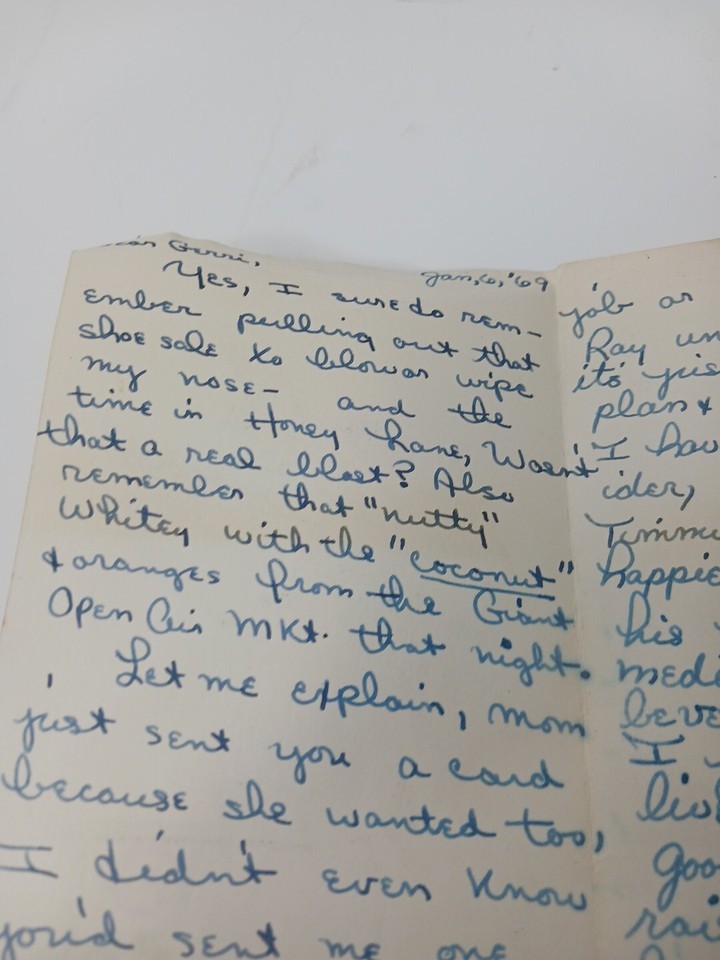 Dear Gerri,
Jan, 6, '69
Yes, I sure do rem-
ember pulling out that
shoe sole to blow or wipe
my nose- and the
time in Honey Lane, Wasn't
that a real blast? Also
remember that "nutty"
Whitey with the "coconut"
& oranges from the Giant
Open Air Mkt. that night.
Let me explain, mom
just sent you a card
because she wanted too,
I didn't even know
you'd sent me one
job or
Ray
it's
plan &
I
ider,
his
I